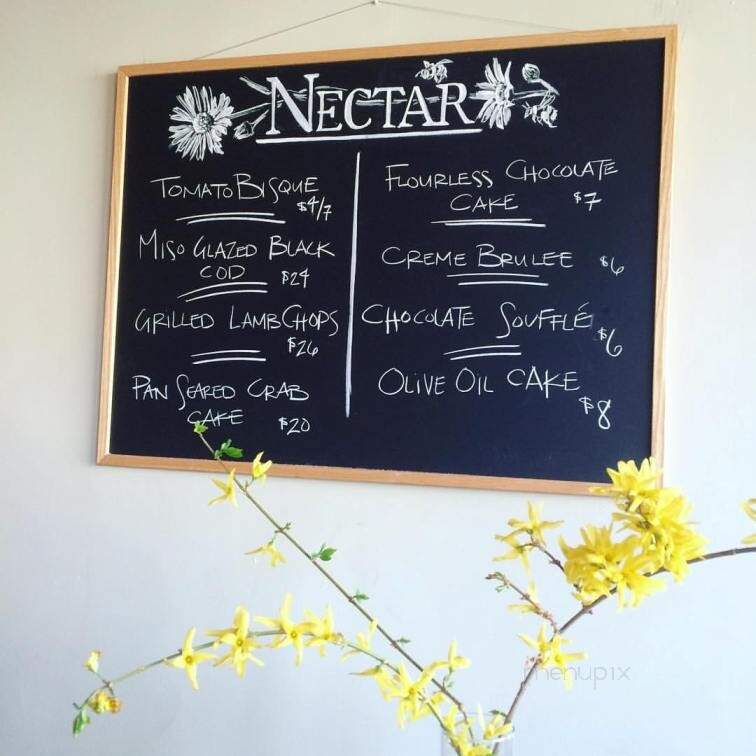 NECTAR
TOMATO BISQUE
$4/7
MISO GLAZED BLACK
COD $24
GRILLED LAMB CHOPS
$26
PAN SEARED CRAB
CAKE $20
FLOURLESS CHOCOLATE
CAKE $7
CREME BRULEE $6
CHOCOLATE SOUFFLÉ
$6
OLIVE OIL CAKE
$8
menupix